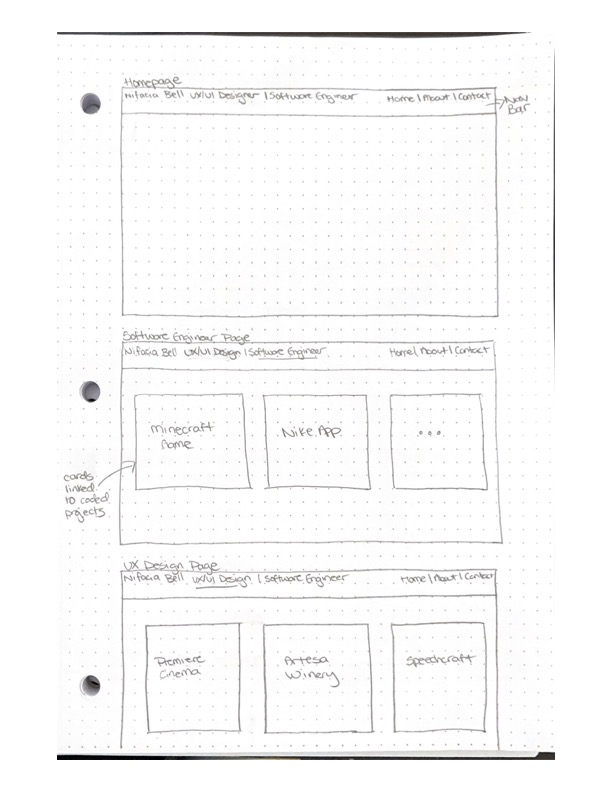 Homepage
Nifacia Bell UX/UI Designer | Software Engineer Home | About | Contact
Nav
Bar
Software Engineer Page
Nifacia Bell UX/UI Design | Software Engineer Home | About | Contact
Minecraft
Game
Nike App
...
cards
linked
to coded
projects
UX Design Page
Nifacia Bell UX/UI Design | Software Engineer Home | About | Contact
Premiere
Cinema
Artesa
Winery
Speechcraft